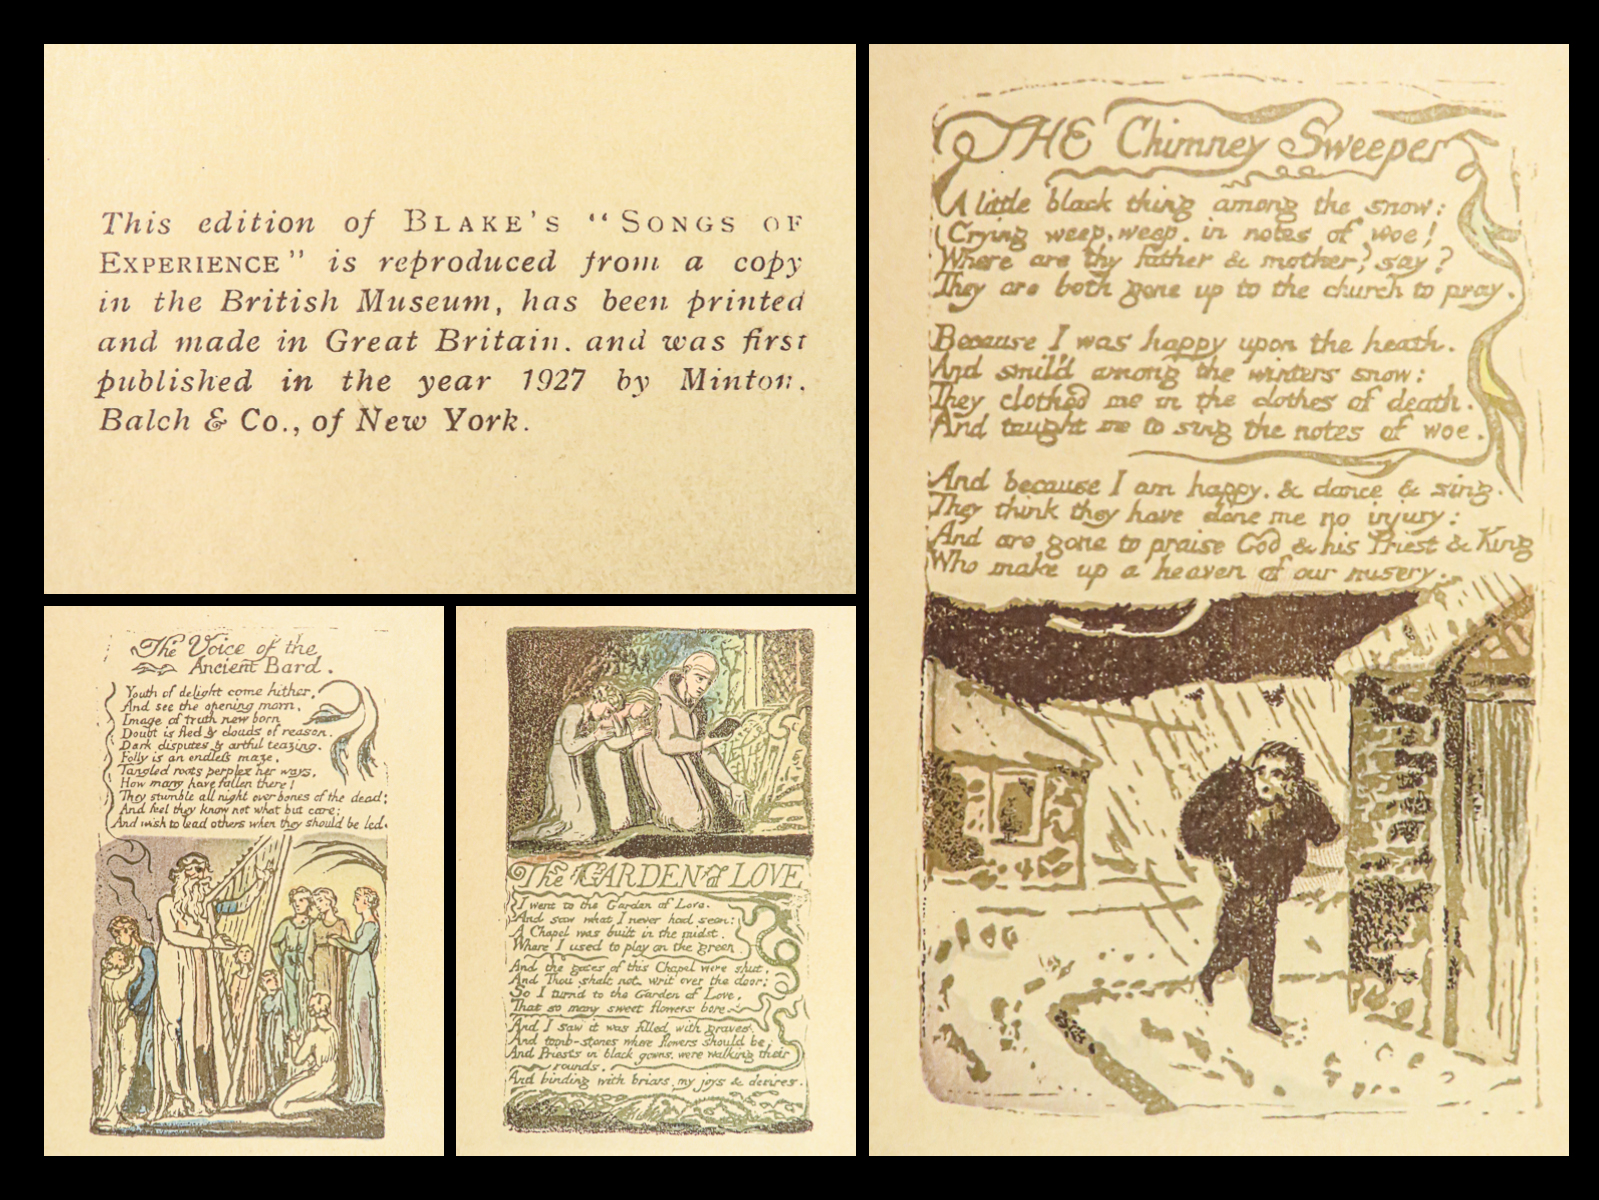 This edition of BLAKE'S "SONGS OF
EXPERIENCE" is reproduced from a copy
in the British Museum, has been printed
and made in Great Britain. and was first
published in the year 1927 by Minton.
Balch & Co., of New York.
The Voice of the
Ancient Bard.
Youth of delight come hither,
And see the opening morn,
Image of truth new born
Doubt is fled & clouds of reason.
Dark disputes & artful teazing.
Folly is an endless maze,
Tangled roots perplex her ways,
How many have fallen there!
They stumble all night over bones of the dead;
And feel they know not what but care;
And wish to lead others when they should be led.
The GARDEN of LOVE
I went to the Garden of Love.
And saw what I never had seen:
A Chapel was built in the midst.
Where I used to play on the green
And the gates of this Chapel were shut,
And Thou shalt not. writ over the door;
So I turnd to the Garden of Love,
That so many sweet flowers bore.
And I saw it was filled with graves,
And tomb-stones where flowers should be,
And Priests in black gowns, were walking their
rounds,
And binding with briars, my joys & desires.
THE Chimney Sweeper
A little black thing among the snow:
Crying weep, weep. in notes of woe!
Where are thy father & mother? say?
They are both gone up to the church to pray.
Because I was happy upon the heath.
And smil'd among the winters snow:
They clothed me in the clothes of death.
And taught me to sing the notes of woe.
And because I am happy. & dance & sing.
They think they have done me no injury:
And are gone to praise God & his Priest & King
Who make up a heaven of our misery.